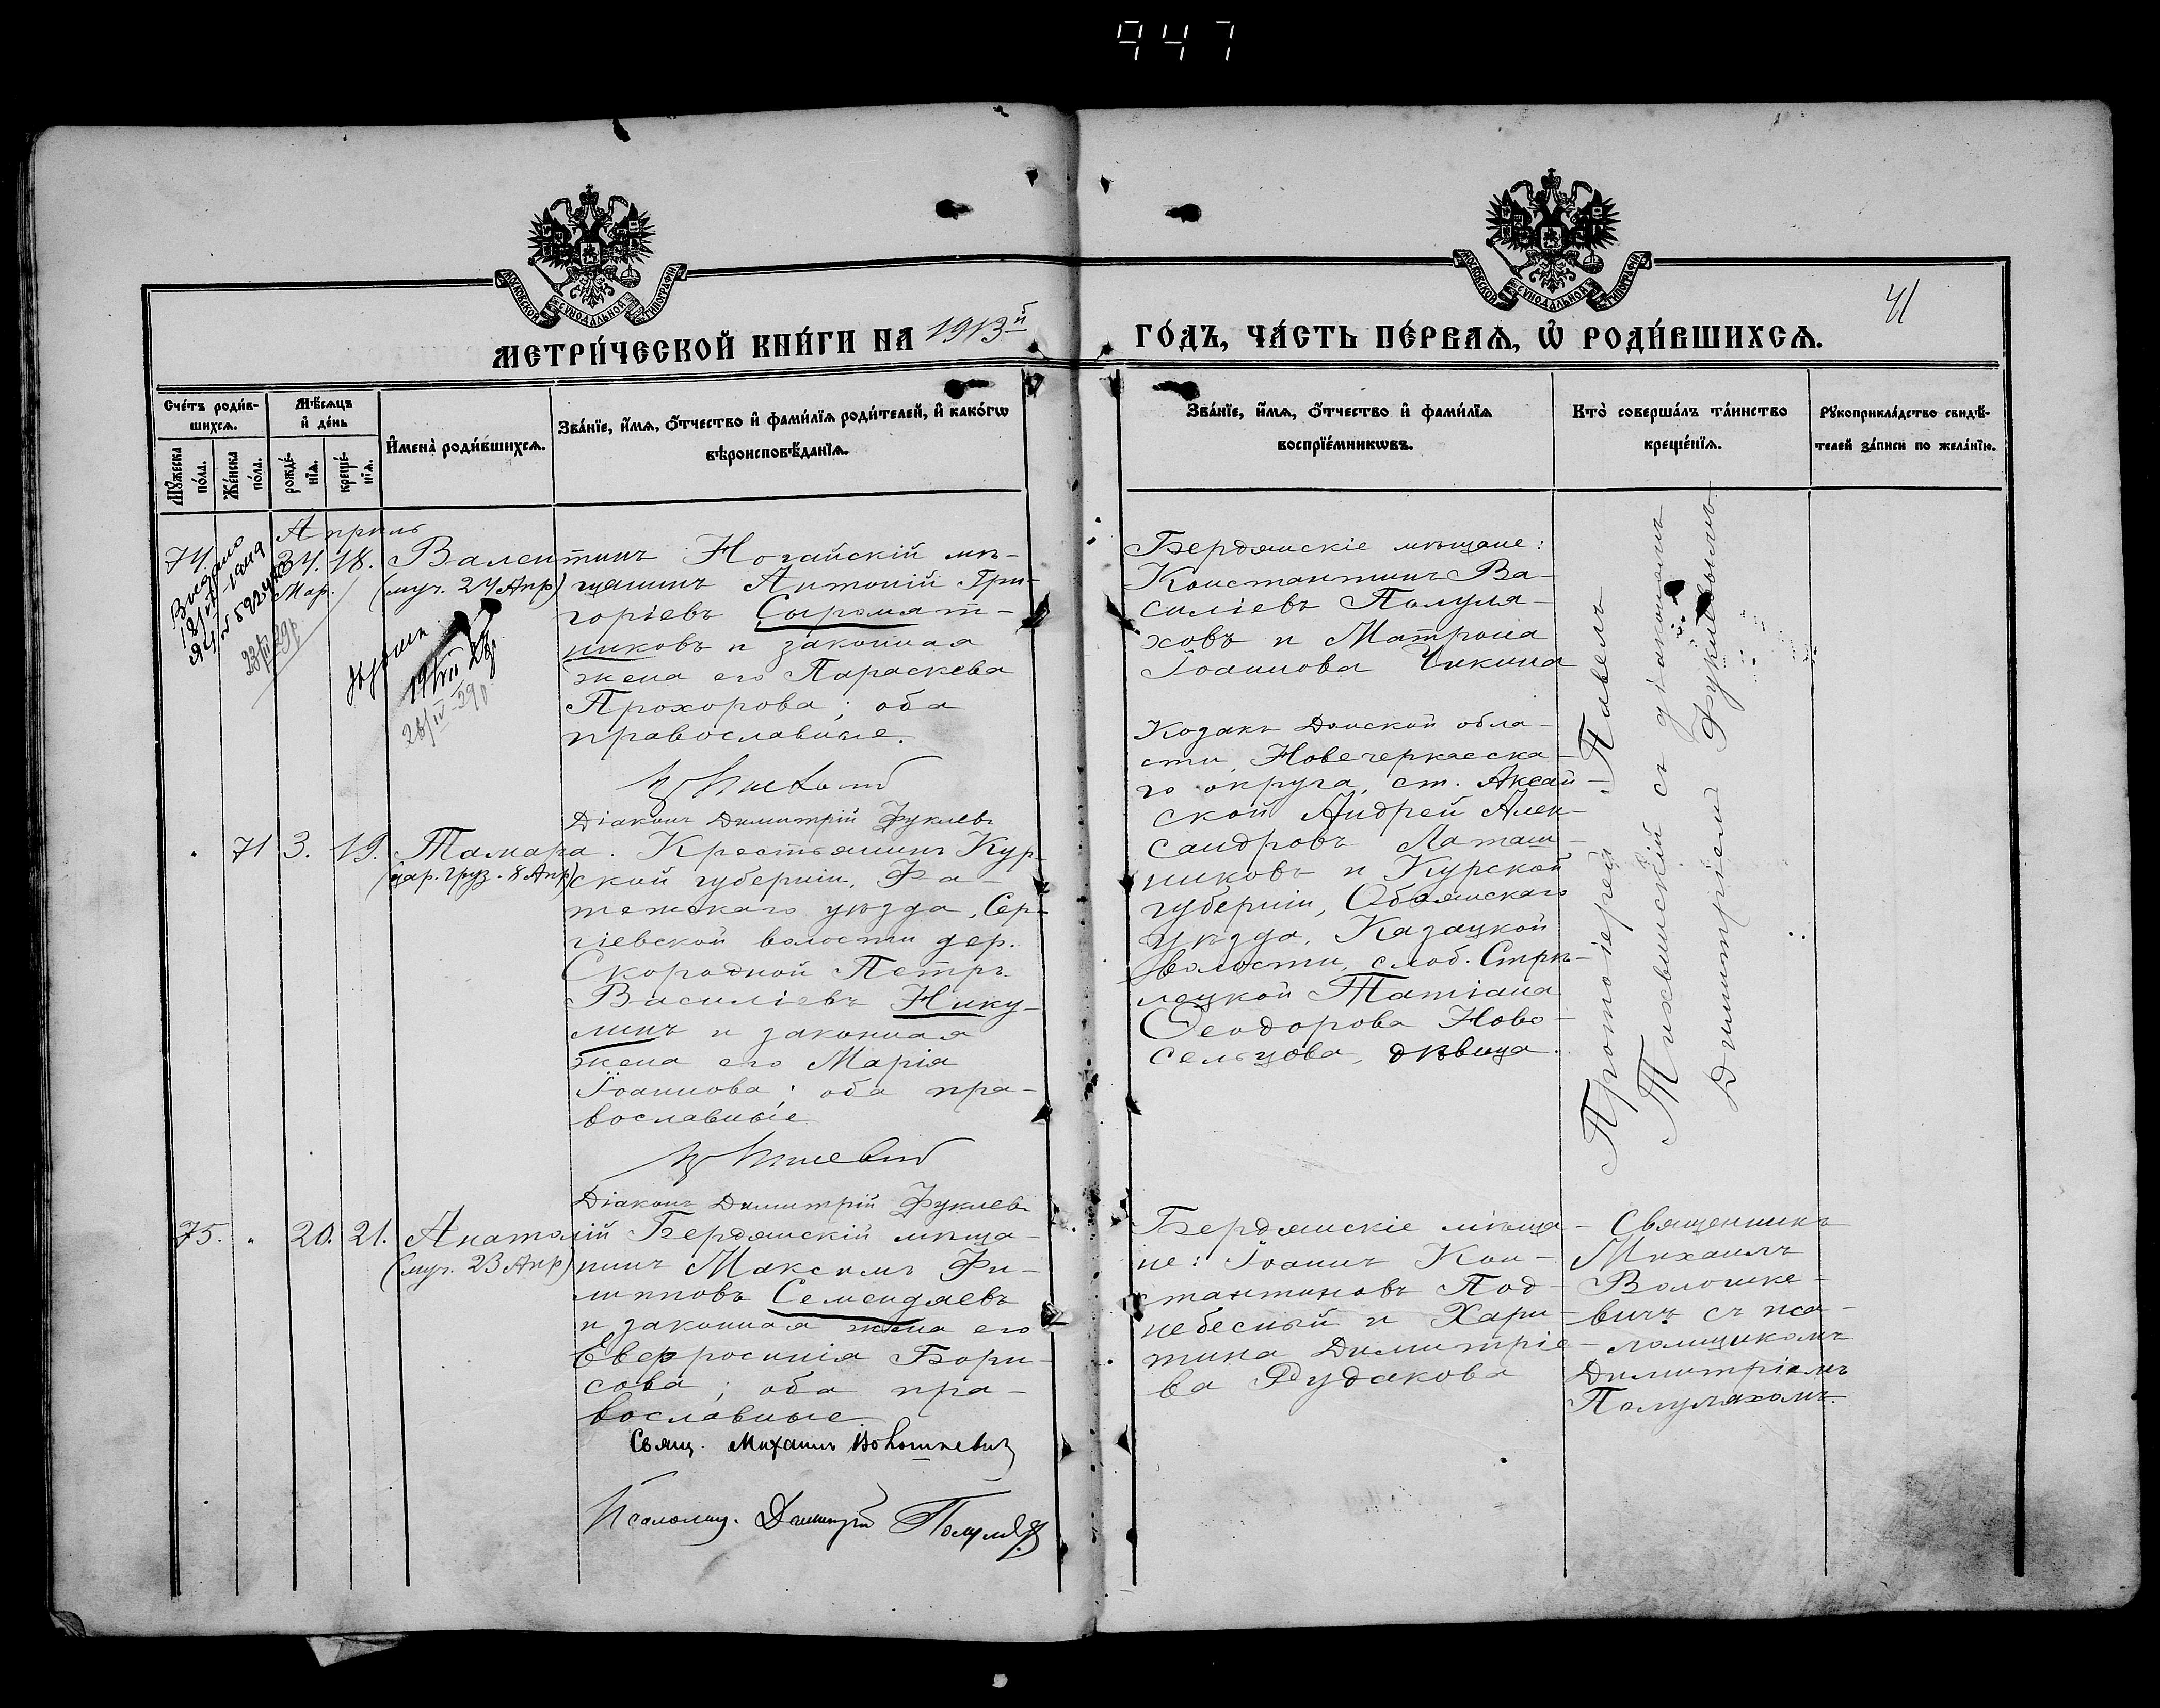 947
МОСКОВСКОЙ СѴНОДАЛЬНОЙ ТИПОГРАФІИ
МОСКОВСКОЙ СѴНОДАЛЬНОЙ ТИПОГРАФІИ
41
МЕТРИ́ЧЕСКОЙ КНИ́ГИ НА 1913й
ГО́ДЪ, ЧА́СТЬ ПЕ́РВАѦ, Ѡ҆ РОДИ́ВШИХСѦ.
Сче́тъ роди́в-
шихсѧ.
Мѣ́сяцъ
и҆ де́нь
Мꙋ́жеска по́ла.
Же́нска по́ла.
рожде́-
нїѧ.
креще́-
нїѧ.
И҆мена̀ роди́вшихсѧ.
Зва́нїе, и҆́мѧ, ѻ҆́тчество и҆ фами́лїѧ роди́телей, и҆ како́гѡ
вѣроисповѣ́данїѧ.
Зва́нїе, и҆́мѧ, ѻ҆́тчество и҆ фами́лїѧ
воспрїе́мникѡвъ.
Кто̀ соверша́лъ та́инство
креще́нїѧ.
Рꙋкоприкла́дство свидѣ́-
телей за́писи по жела́нїю.
Апрѣль
74. 18. Валентинъ
Мар. (муч. 24 Апр)
Выдано
Ногайскій мѣ-
щанинъ Антоній Гри-
горіевъ Сыромят-
никовъ и законная
жена его Параскева
Прохорова; оба
православные.
Діаконъ Димитрій Фуклевъ
Бердянскіе мѣщане:
Константинъ Ва-
силіевъ Полуля-
ховъ и Матрона
Іоаннова Чикина
Протоіерей Павелъ
Тихвинскій съ діакономъ
Димитріемъ Фуклевымъ.
71 3. 19. Тамара.
(цар. Груз. 8 Апр)
Крестьянинъ Кур-
ской губерніи, Фа-
тежскаго уѣзда, Сер-
гіевской волости дер.
Скородной Петръ
Василіевъ Нику-
линъ и законная
жена его Марія
Іоаннова; оба пра-
вославные
Діаконъ Димитрій Фуклевъ
Козакъ Донской обла-
сти, Новочеркасска-
го округа, ст. Аксай-
ской Андрей Алек-
сандровъ Латаш-
никовъ и Курской
губерніи, Обоянскаго
уѣзда, Казацкой
волости, слоб. Стрѣ-
лецкой Татіана
Ѳеодорова Ново-
сельцова, дѣвица.
75. " 20. 21. Анатолій
(муч. 23 Апр)
Бердянскій мѣща-
нинъ Максимъ Фи-
липповъ Семендяевъ
и законная жена его
Евфросинія Бори-
сова; оба пра-
вославные
Свящ. Михаилъ Волошкевичъ
Псаломщ. Димитрій Полуляхъ
Бердянскіе мѣща-
не: Іоаннъ Кон-
стантиновъ Под-
небесный и Хари-
тина Димитріе-
ва Рудакова
Священникъ
Михаилъ
Волошке-
вичъ съ пса-
ломщикомъ
Димитріемъ
Полуляхомъ.